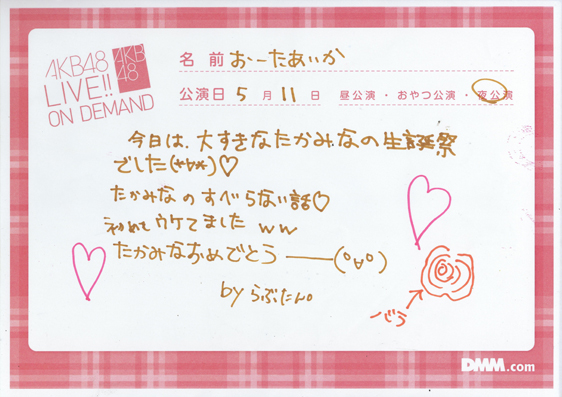 AKB48
LIVE!!
ON DEMAND
AKB
48
名前 おーたあいか
公演日 5月11日 昼公演・おやつ公演・夜公演
今日は、大すきなたかみなの生誕祭
でした(*∀*)♡
たかみなのすべらない話♡
初めてウケてました ww
たかみなおめでとう――(°∀°)
by らぶたん。
バラ
DMM.com